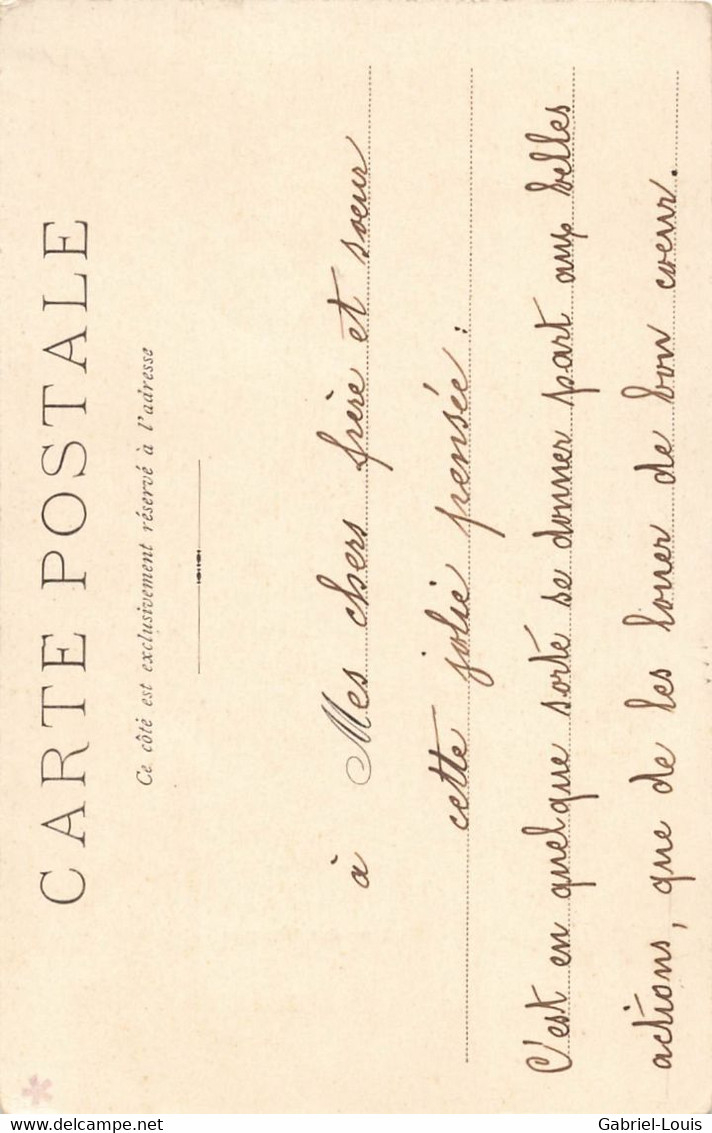 CARTE POSTALE
Ce côté est exclusivement réservé à l'adresse
à Mes chers frère et sœur
cette jolie pensée :
C'est en quelque sorte se donner part aux belles
actions, que de les louer de bon cœur.
delcampe.net
Gabriel-Louis